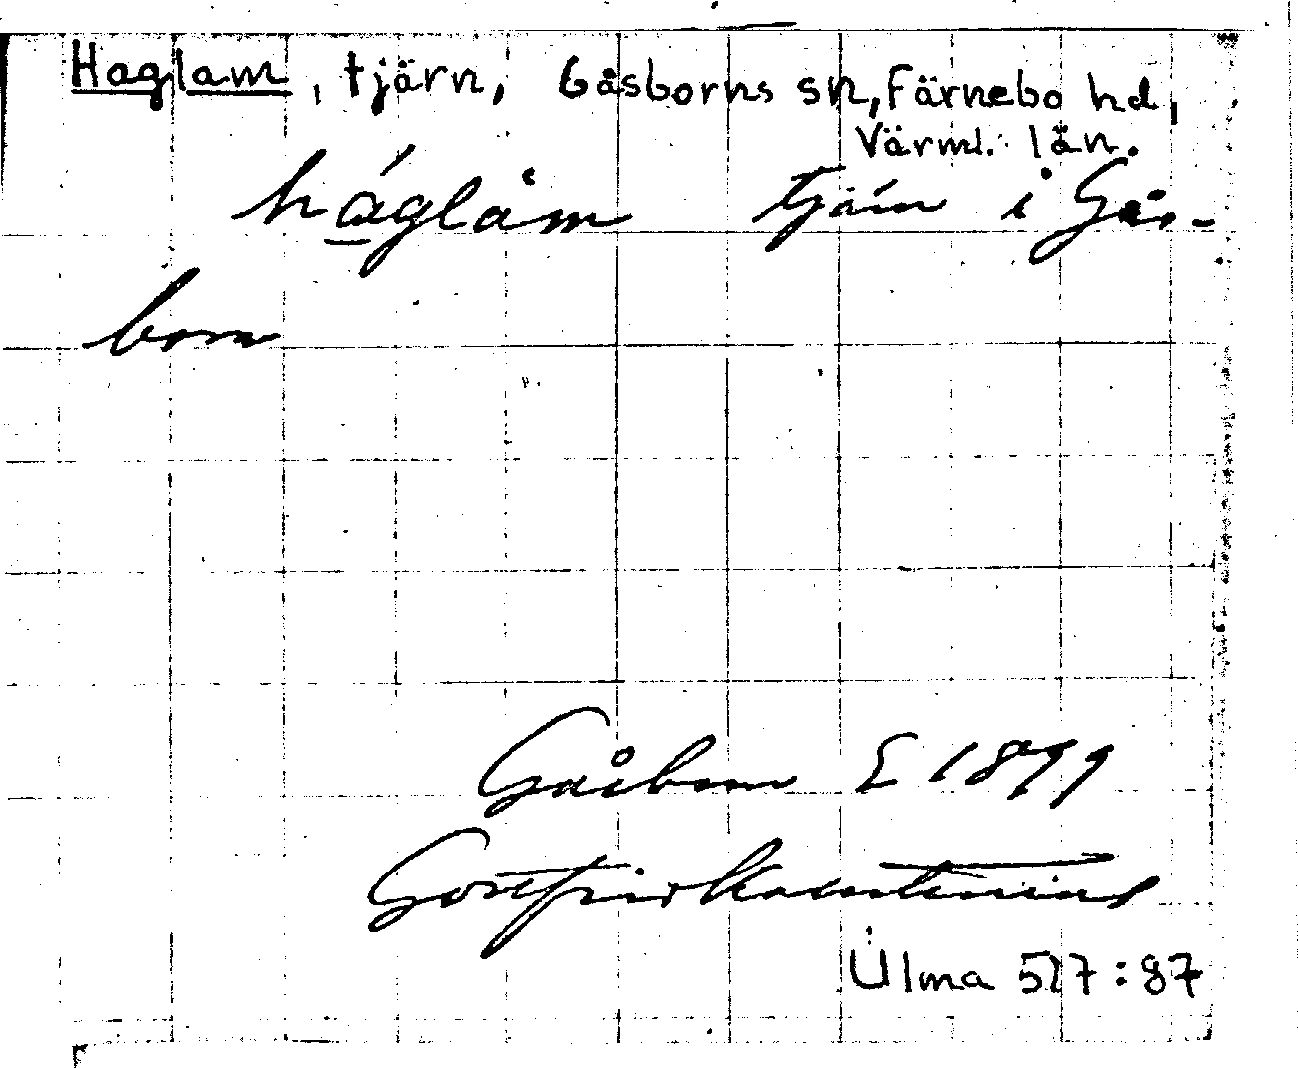 Haglam, tjärn, Gåsborns sn, Färnebo hd,
Värml. län.
háglåm tjärn i Gås-
born
Gåsborn S 1899
Gottfrid Kallstenius
Ulma 517:87